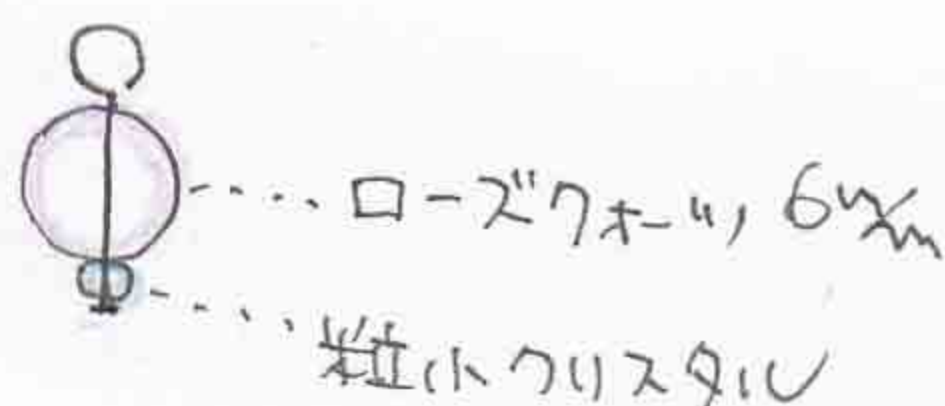 ローズクォーツ 6m/m
粒小クリスタル